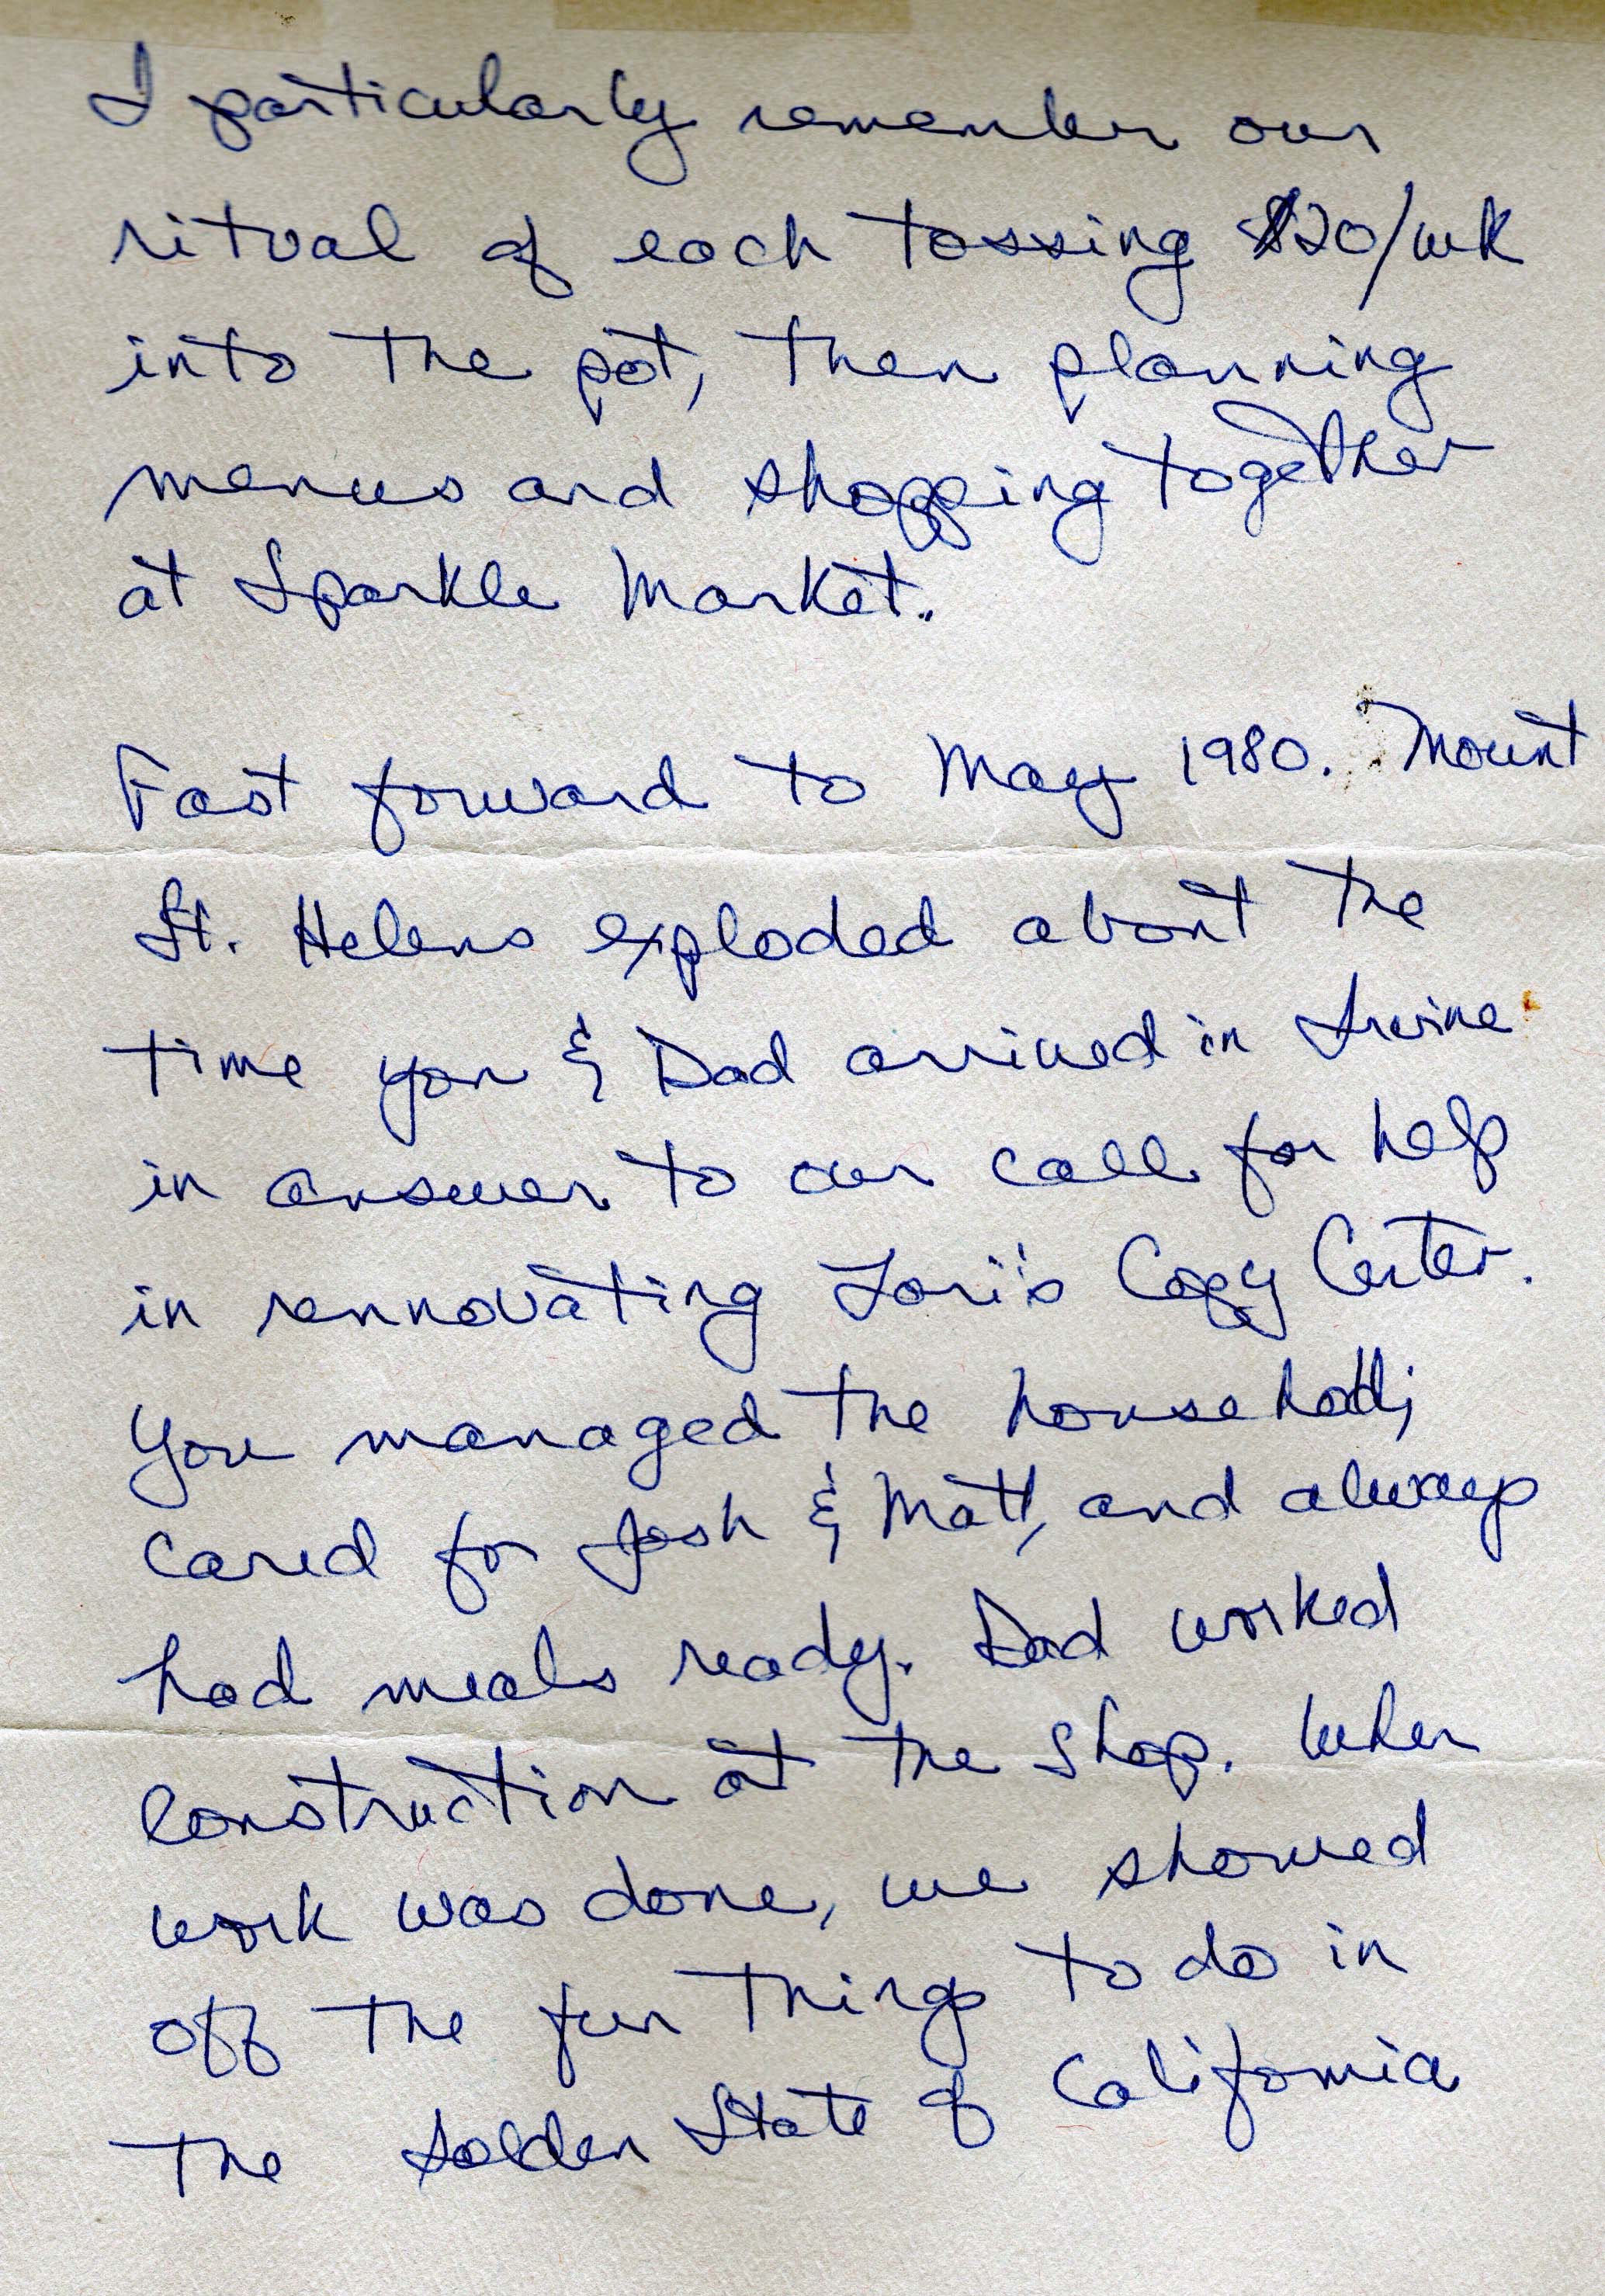 I particularly remember our
ritual of each tossing $20/wk
into the pot, then planning
menus and shopping together
at Sparkle Market.
Fast forward to May 1980. Mount
St. Helens exploded about the
time you & Dad arrived in Irvine
in answer to our call for help
in rennovating Lori's Copy Center.
You managed the household;
cared for Josh & Matt, and always
had meals ready. Dad worked
construction at the shop. When
work was done, we showed
off the fun things to do in
the Golden State of California